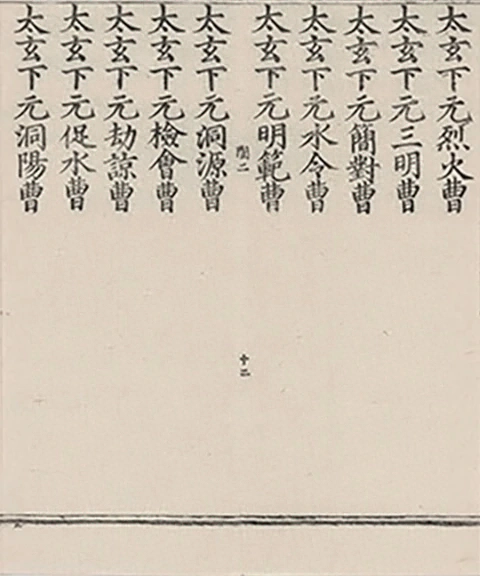 太玄下元烈火曹
太玄下元三明曹
太玄下元簡對曹
太玄下元水令曹
太玄下元明範曹
十二
太玄下元洞源曹
太玄下元檢會曹
太玄下元劫諒曹
太玄下元促水曹
太玄下元洞陽曹